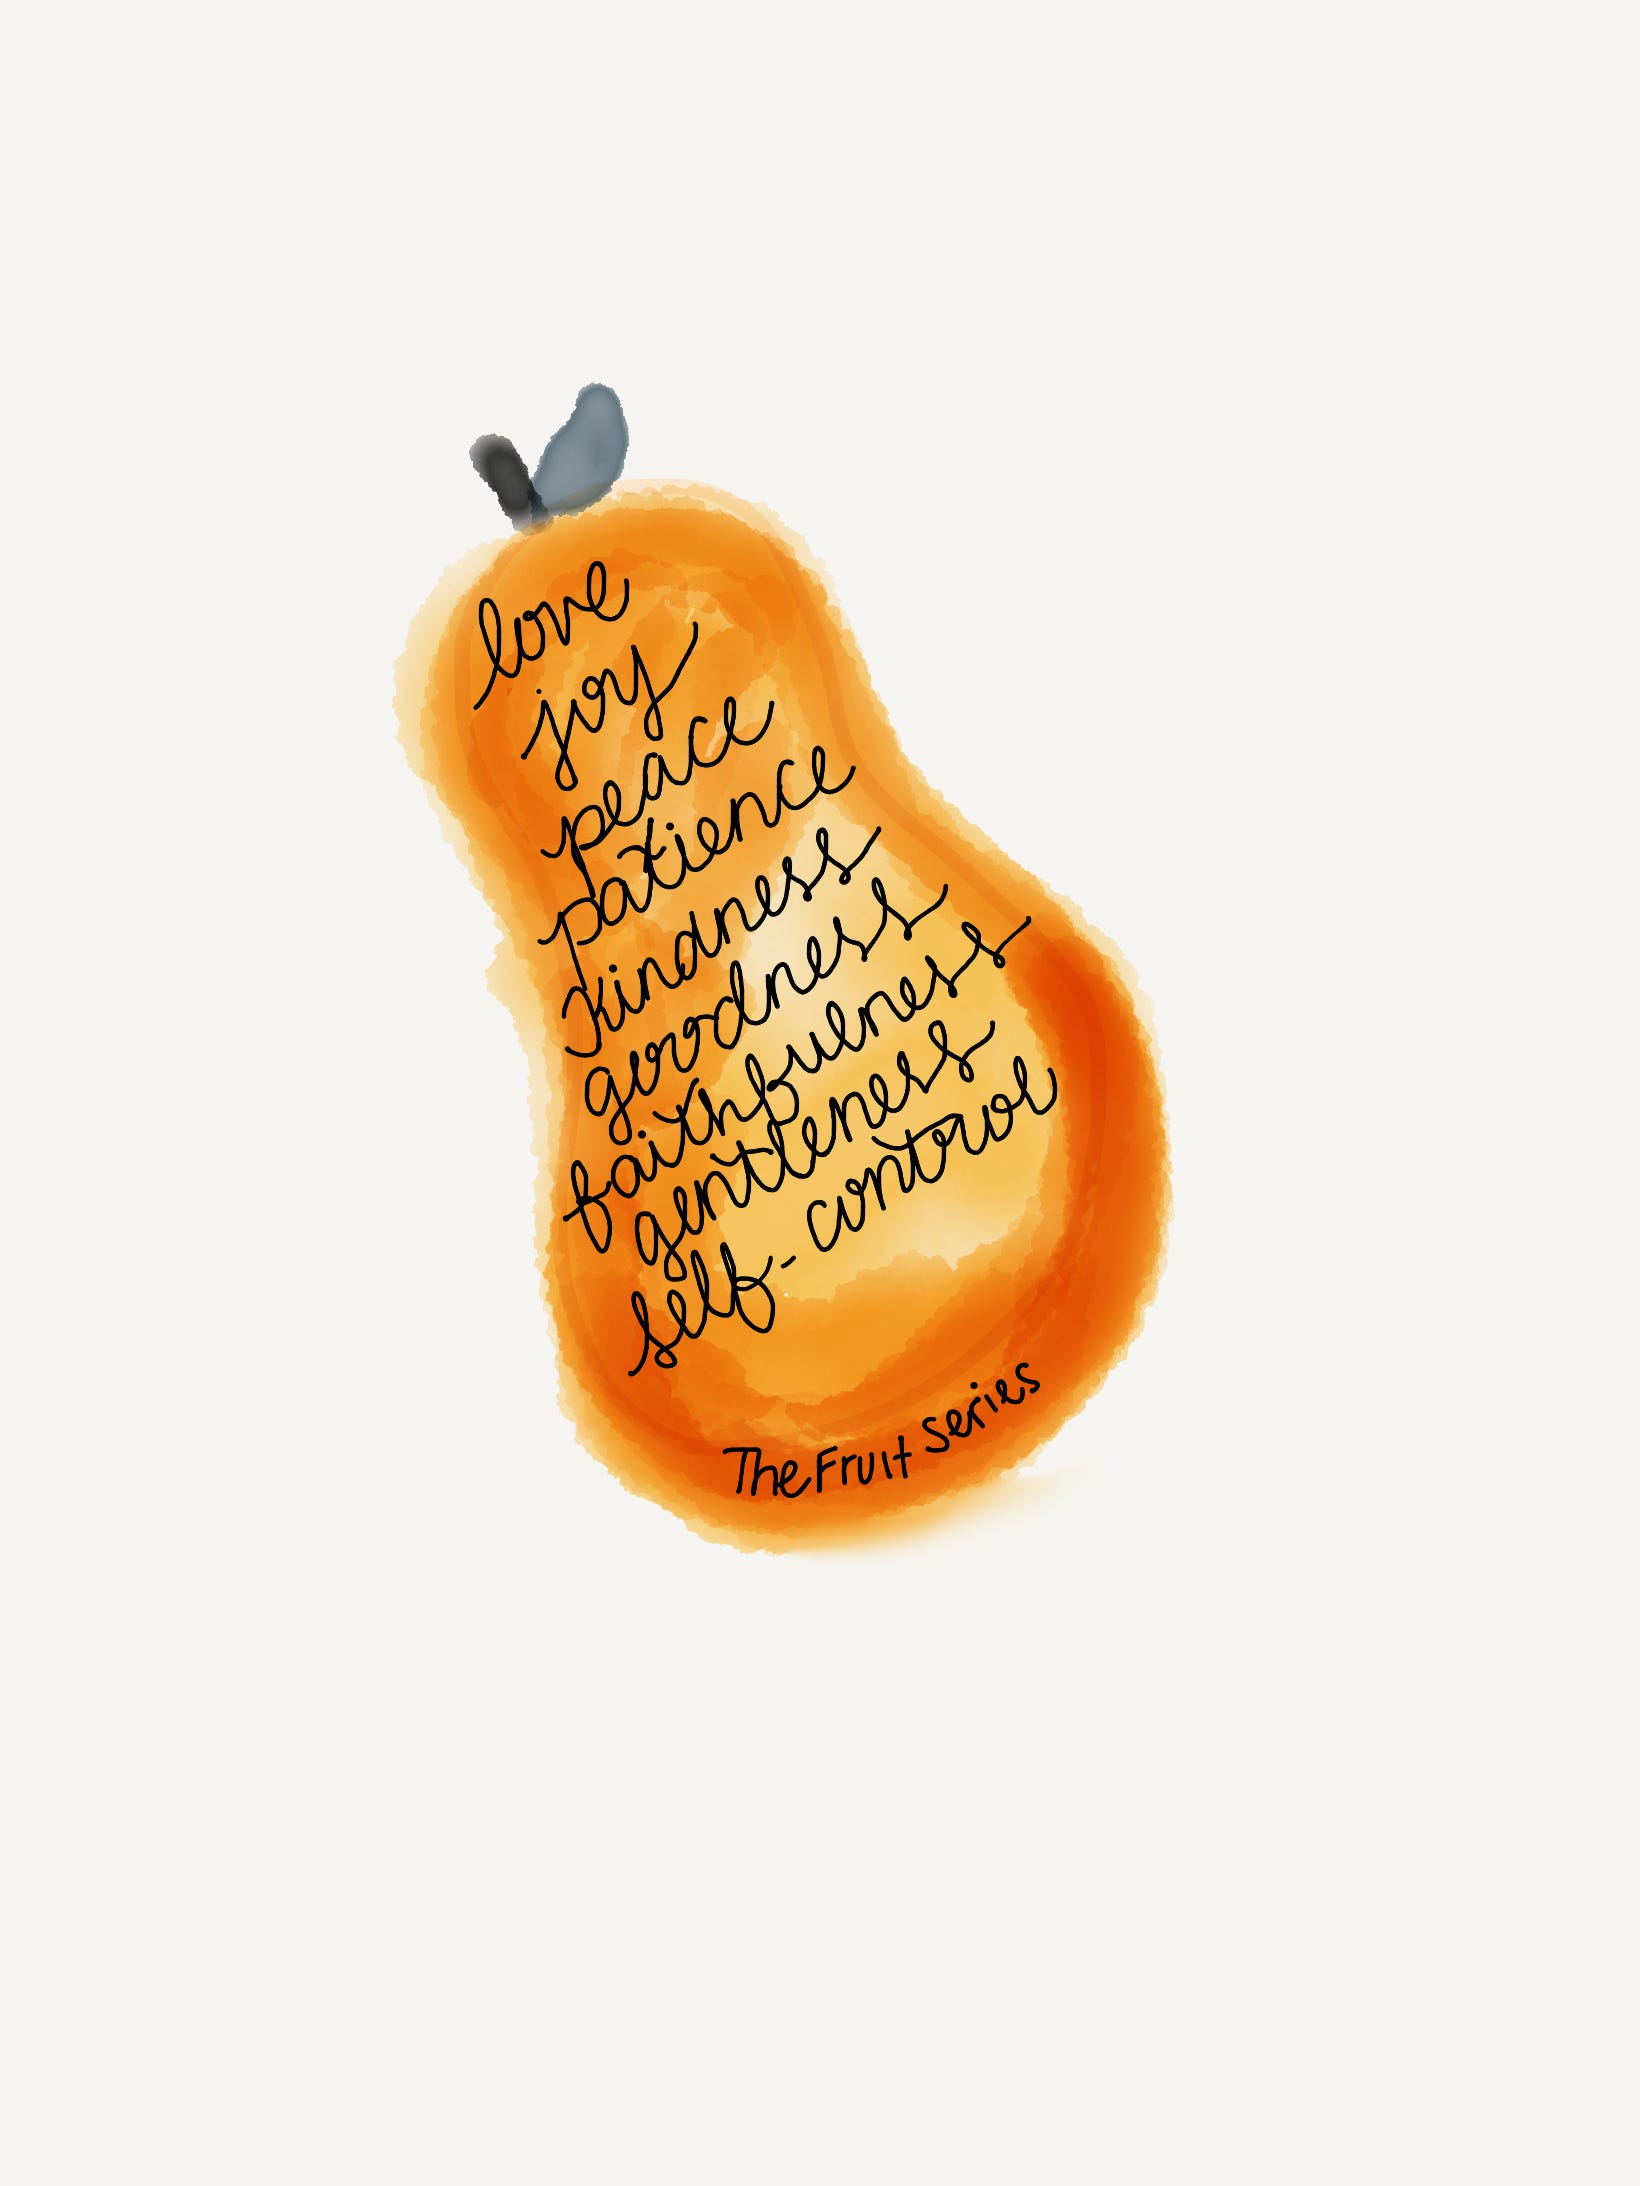 love
joy
peace
patience
kindness
goodness
faithfulness
gentleness
self-control
The Fruit Series